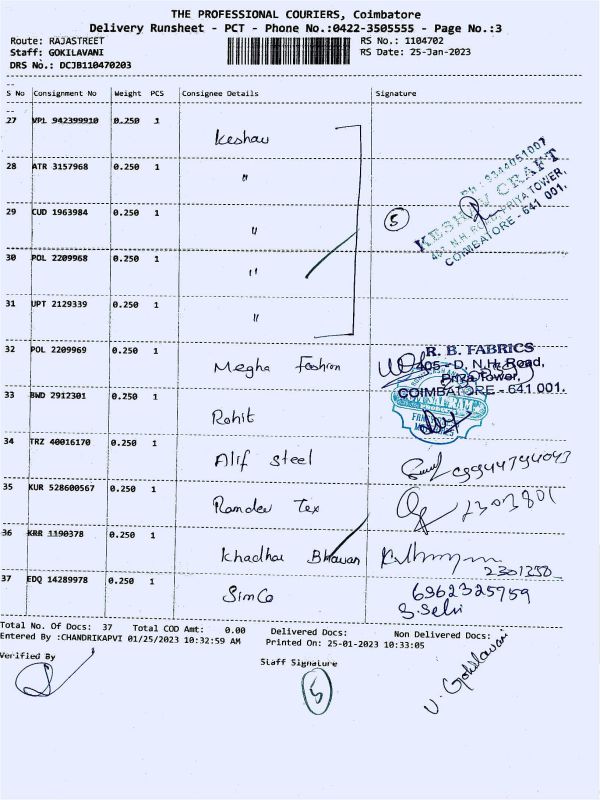 THE PROFESSIONAL COURIERS, Coimbatore
Delivery Runsheet - PCT - Phone No.:0422-3505555 - Page No.:3
Route: RAJASTREET RS No.: 1104702
Staff: GOKILAVANI RS Date: 25-Jan-2023
DRS No.: DCJB110470203
S No Consignment No Weight PCS Consignee Details Signature
27 VPL 942399910 0.250 1
Keshav
28 ATR 3157968 0.250 1
"
29 CUD 1963984 0.250 1
"
30 POL 2209968 0.250 1
"
31 UPT 2129339 0.250 1
"
5
Ph : 9344051007
KESHAV CRAFT
N.H. ROAD, PRIYA TOWER,
COIMBATORE - 641 001.
32 POL 2209969 0.250 1
Megha Fashion
R. B. FABRICS
405 - D, N.H. Road,
Priya Tower,
COIMBATORE - 641 001.
33 BWD 2912301 0.250 1
Rohit
34 TRZ 40016170 0.250 1
Alif steel
35 KUR 528600567 0.250 1
Ramdev Tex
36 KRR 1190378 0.250 1
Khadhar Bhavan
37 EDQ 14289978 0.250 1
SimCo
6962325759
S. Selvi
Total No. Of Docs: 37 Total COD Amt: 0.00 Delivered Docs: Non Delivered Docs:
Entered By :CHANDRIKAPVI 01/25/2023 10:32:59 AM Printed On: 25-01-2023 10:33:05
Verified By
Staff Signature
5
V. Gokilavani